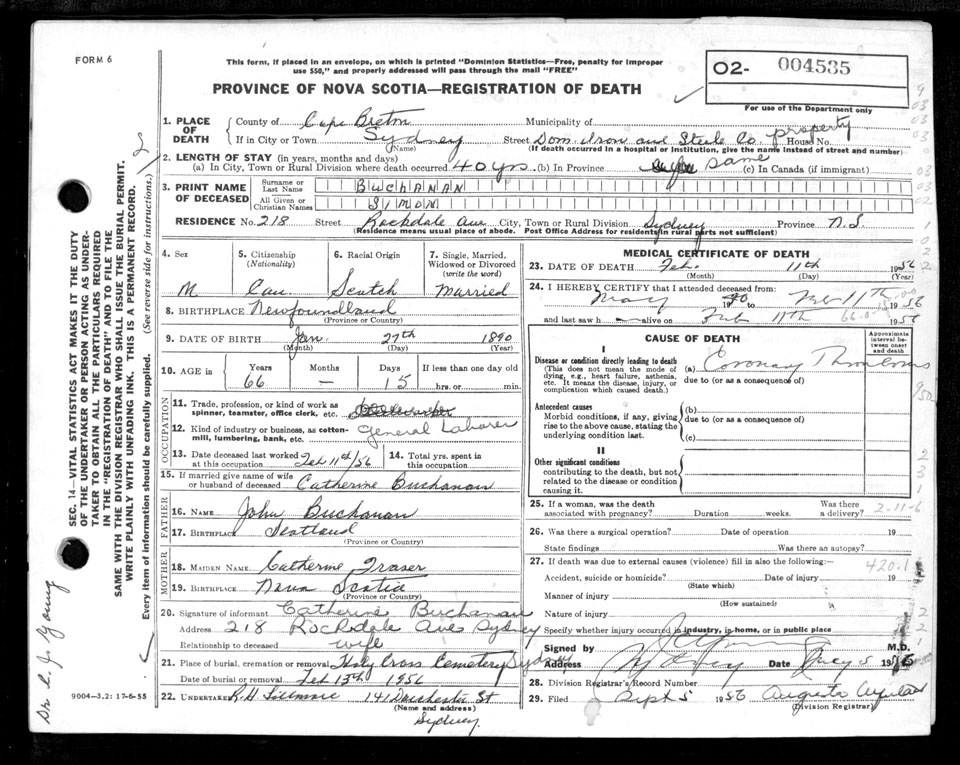 FORM 6
This form, if placed in an envelope, on which is printed "Dominion Statistics—Free, penalty for improper
use $50," and properly addressed will pass through the mail "FREE"
O2- 004535
For use of the Department only
PROVINCE OF NOVA SCOTIA—REGISTRATION OF DEATH
1. PLACE OF DEATH
County of Cape Breton Municipality of
If in City or Town Sydney Street Dom. Iron and Steele Co property House No.
(Name) (If death occurred in a hospital or institution, give the name instead of street and number)
2. LENGTH OF STAY (in years, months and days)
(a) In City, Town or Rural Division where death occurred 40 yrs. (b) In Province same (c) In Canada (if immigrant)
3. PRINT NAME OF DECEASED
Surname or Last Name BUCHANAN
All Given or Christian Names SIMON
RESIDENCE No. 218 Street Rockdale Ave City, Town or Rural Division Sydney Province N.S.
(Residence means usual place of abode. Post Office Address for residents in rural parts not sufficient)
4. Sex
M
5. Citizenship
(Nationality)
Can
6. Racial Origin
Scotch
7. Single, Married, Widowed or Divorced
(write the word)
Married
8. BIRTHPLACE Newfoundland
(Province or Country)
9. DATE OF BIRTH Jan. 27th 1890
(Month) (Day) (Year)
10. AGE IN
Years Months Days If less than one day old
66 — 15 hrs. or min.
OCCUPATION
11. Trade, profession, or kind of work as spinner, teamster, office clerk, etc.
12. Kind of industry or business, as cotton-mill, lumbering, bank, etc. General Laborer
13. Date deceased last worked at this occupation Feb 11th/56
14. Total yrs. spent in this occupation
15. If married give name of wife or husband of deceased Catherine Buchanan
FATHER
16. NAME John Buchanan
17. BIRTHPLACE Scotland
(Province or Country)
MOTHER
18. MAIDEN NAME Catherine Fraser
19. BIRTHPLACE Nova Scotia
(Province or Country)
20. Signature of informant Catherine Buchanan
Address 218 Rockdale Ave Sydney
Relationship to deceased wife
21. Place of burial, cremation or removal Holy Cross Cemetery Sydney
Date of burial or removal Feb 13th 1956
22. UNDERTAKER 141 Dorchester St
(Name and address)
Sydney.
MEDICAL CERTIFICATE OF DEATH
23. DATE OF DEATH Feb. 11th 1956
(Month) (Day) (Year)
24. I HEREBY CERTIFY that I attended deceased from:
May to Feb 11th 1956
and last saw h alive on Feb 11th 1956
CAUSE OF DEATH
Approximate interval between onset and death
I
Disease or condition directly leading to death
(This does not mean the mode of dying, e.g., heart failure, asthenia, etc. It means the disease, injury, or complication which caused death.)
(a) Coronary Thrombosis
due to (or as a consequence of)
Antecedent causes
Morbid conditions, if any, giving rise to the above cause, stating the underlying condition last.
(b)
due to (or as a consequence of)
(c)
II
Other significant conditions
contributing to the death, but not related to the disease or condition causing it.
25. If a woman, was the death associated with pregnancy? Duration weeks. Was there a delivery?
2-11-6
26. Was there a surgical operation? Date of operation 19
State findings Was there an autopsy?
27. If death was due to external causes (violence) fill in also the following: 420.1
Accident, suicide or homicide? Date of injury 19
(State which)
Manner of injury
(How sustained)
Nature of injury
Specify whether injury occurred in industry, in home, or in public place
Signed by M.D.
Address Sydney Date 19
28. Division Registrar's Record Number
29. Filed Sept 5 1956 Augusta
(Division Registrar)
SEC. 14—VITAL STATISTICS ACT MAKES IT THE DUTY
OF THE UNDERTAKER OR PERSON ACTING AS UNDER-
TAKER TO OBTAIN ALL THE PARTICULARS REQUIRED
IN THE "REGISTRATION OF DEATH" AND TO FILE THE
SAME WITH THE DIVISION REGISTRAR WHO SHALL ISSUE THE BURIAL PERMIT.
WRITE PLAINLY WITH UNFADING INK. THIS IS A PERMANENT RECORD.
Every item of information should be carefully supplied. (See reverse side for instructions.)
9004-3.2: 17-6-55